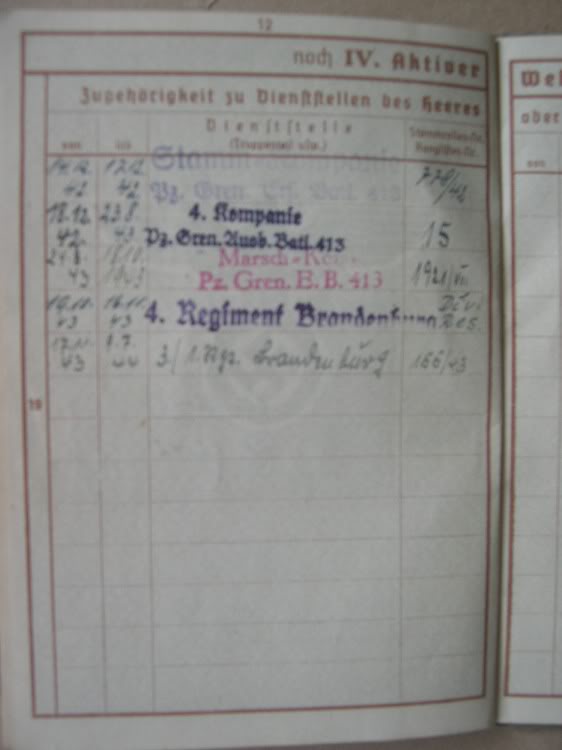 12
noch IV. Aktiver
Zugehörigkeit zu Dienststellen des Heeres
Dienststelle
von bis (Truppenteil usw.) Stammrollen-Nr. Ranglisten-Nr.
14.12. 42 17.12. 42 Stammkompanie Pz. Gren. Ers. Batl. 413 776/42
18.12. 42. 23.8. 43 4. Kompanie Pz. Gren. Ausb. Batl. 413 15
24.8. 43 43 Marsch-Kp. Pz. Gren. E. B. 413
43 43 4. Regiment Brandenburg
43 44 3./1. Rgt. Brandenburg 166/43
19
Weh
oder
von